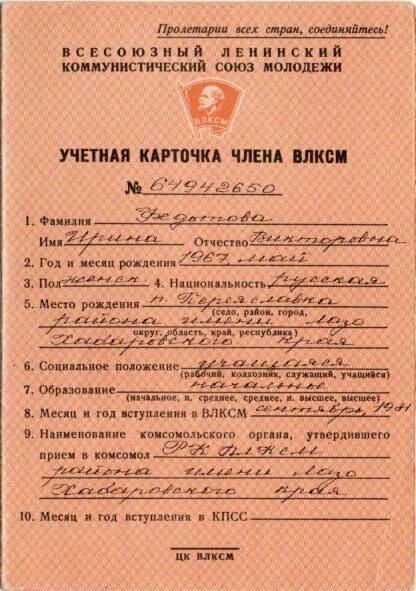 Пролетарии всех стран, соединяйтесь!
ВСЕСОЮЗНЫЙ ЛЕНИНСКИЙ
КОММУНИСТИЧЕСКИЙ СОЮЗ МОЛОДЕЖИ
ВЛКСМ
УЧЕТНАЯ КАРТОЧКА ЧЛЕНА ВЛКСМ
№ 64942650
1. Фамилия Федотова
Имя Ирина Отчество Викторовна
2. Год и месяц рождения 1967 май
3. Пол женск 4. Национальность русская
5. Место рождения п. Переяславка
(село, район, город,
района имени Лазо
округ, область, край, республика)
Хабаровского края
6. Социальное положение учащаяся
(рабочий, колхозник, служащий, учащийся)
7. Образование начальное
(начальное, н. среднее, среднее, н. высшее, высшее)
8. Месяц и год вступления в ВЛКСМ сентябрь, 1981
9. Наименование комсомольского органа, утвердившего
прием в комсомол РК ВЛКСМ
района имени Лазо
Хабаровского края
10. Месяц и год вступления в КПСС
ЦК ВЛКСМ